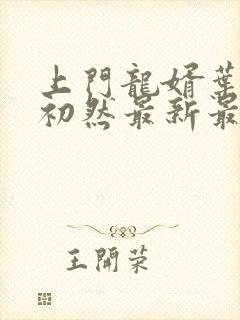 上門龍婿葉
初然最新最
王開荣